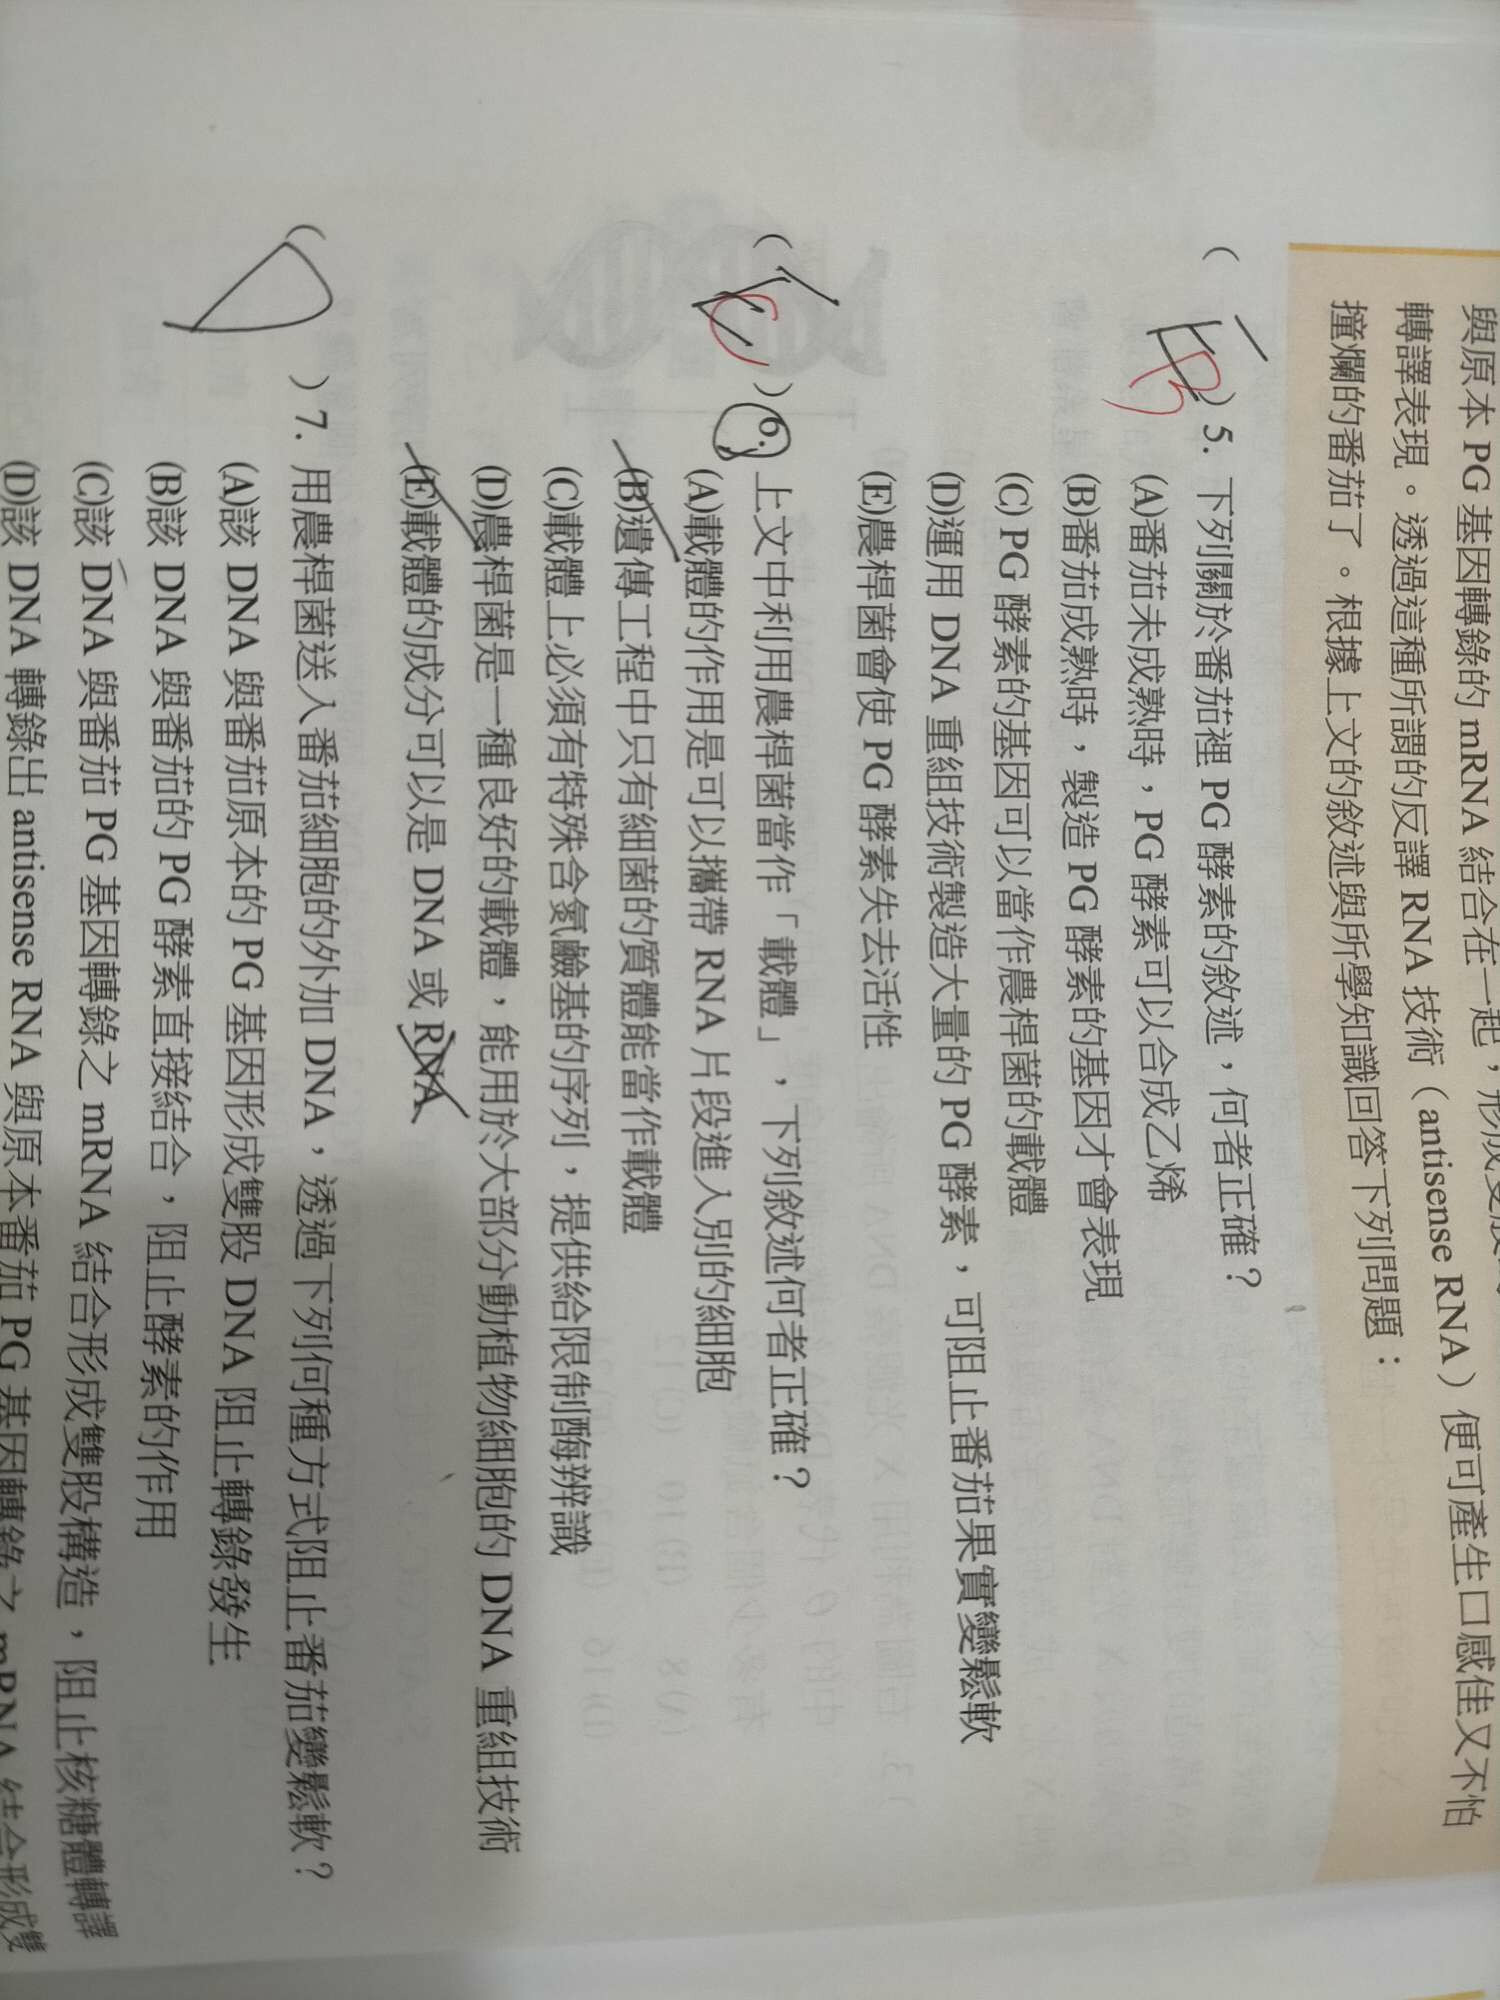 與原本 PG 基因轉錄的 mRNA 結合在一起，形成雙股
轉譯表現。透過這種所謂的反譯 RNA 技術（antisense RNA）便可產生口感佳又不怕
撞爛的番茄了。根據上文的敘述與所學知識回答下列問題：
（ B ）5. 下列關於番茄裡 PG 酵素的敘述，何者正確？
(A)番茄未成熟時，PG 酵素可以合成乙烯
(B)番茄成熟時，製造 PG 酵素的基因才會表現
(C) PG 酵素的基因可以當作農桿菌的載體
(D)運用 DNA 重組技術製造大量的 PG 酵素，可阻止番茄果實變鬆軟
(E)農桿菌會使 PG 酵素失去活性
（ C ）6. 上文中利用農桿菌當作「載體」，下列敘述何者正確？
(A)載體的作用是可以攜帶 RNA 片段進入別的細胞
(B)遺傳工程中只有細菌的質體能當作載體
(C)載體上必須有特殊含氮鹼基的序列，提供給限制酶辨識
(D)農桿菌是一種良好的載體，能用於大部分動植物細胞的 DNA 重組技術
(E)載體的成分可以是 DNA 或 RNA
（ D ）7. 用農桿菌送入番茄細胞的外加 DNA，透過下列何種方式阻止番茄變鬆軟？
(A)該 DNA 與番茄原本的 PG 基因形成雙股 DNA 阻止轉錄發生
(B)該 DNA 與番茄的 PG 酵素直接結合，阻止酵素的作用
(C)該 DNA 與番茄 PG 基因轉錄之 mRNA 結合形成雙股構造，阻止核糖體轉譯
(D)該 DNA 轉錄出 antisense RNA 與原本番茄 PG 基因轉錄之 mRNA 結合形成雙